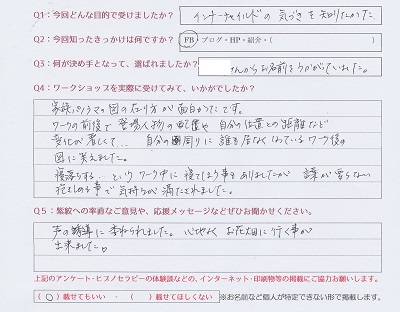 Q1：今回どんな目的で受けましたか？ インナーチャイルドの気づきを知りたかった。
Q2：今回知ったきっかけは何ですか？ FB・ブログ・HP・紹介・（ ）
Q3：何が決め手となって、選ばれましたか？ さんからお名前をうかがっていました。
Q4：ワークショップを実際に受けてみて、いかがでしたか？
家族パノラマの図の在り方が面白かったです。
ワークの前後で登場人物の配置や自分の位置との距離など
変化が著しくて… 自分の周りに誰も居なくなっているワーク後の
図に笑えました。
寝落ちする…というワーク中に寝てしまう事もありましたが
花をしめる事で気持ちが満たされました。
Q5：紫紋への率直なご意見や、応援メッセージなどぜひお聞かせください。
声の誘導に癒わられました。心地よくお花畑に行く事が
出来ました。
上記のアンケート・ヒプノセラピーの体験談などの、インターネット・印刷物等の掲載にご協力お願いします。
（ ○ ）載せてもいい ・ （ ）載せてほしくない ※お名前など個人が特定できない形で掲載します。